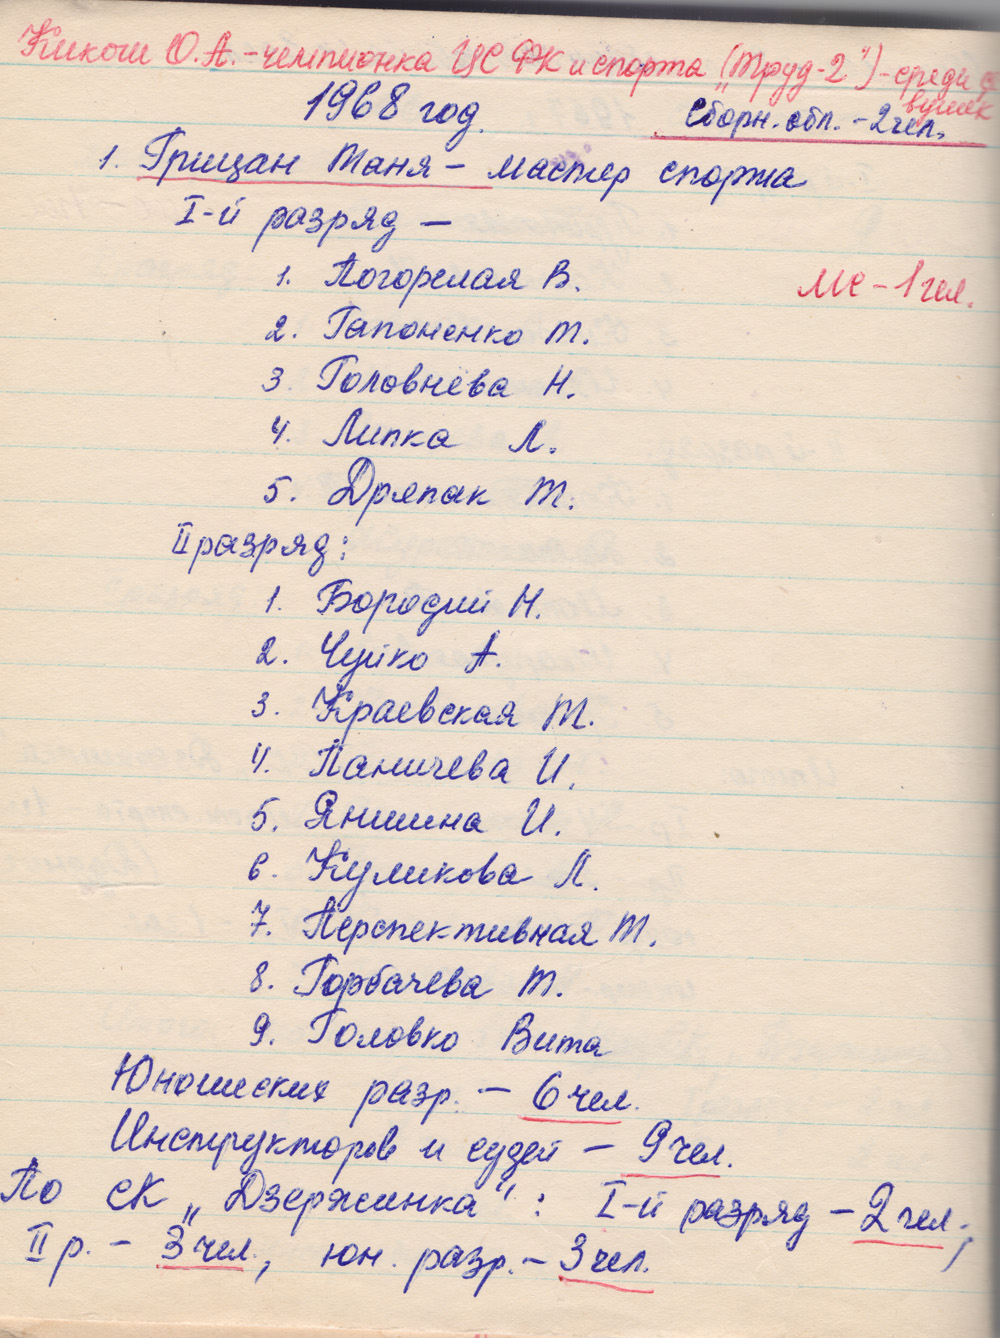 Кикош О.А. - чемпионка ЦС ФК и спорта ("Труд-2") - среди
1968 год.
Сборн. обл. - 2 чел.
1. Грицан Таня - мастер спорта
I-й разряд -
1. Погорелая В.
МС - 1 чел.
2. Гапоненко Т.
3. Головнёва Н.
4. Липка Л.
5. Дряпак Т.
II разряд:
1. Бородий Н.
2. Чуйко А.
3. Краевская Т.
4. Паничева И.
5. Яншина И.
6. Куликова Л.
7. Перспективная Т.
8. Горбачева Т.
9. Головко Вита
Юношеских разр. - 6 чел.
Инструкторов и судей - 9 чел.
По СК "Дзержинка": I-й разряд - 2 чел.,
II р. - 3 чел., юн. разр. - 3 чел.